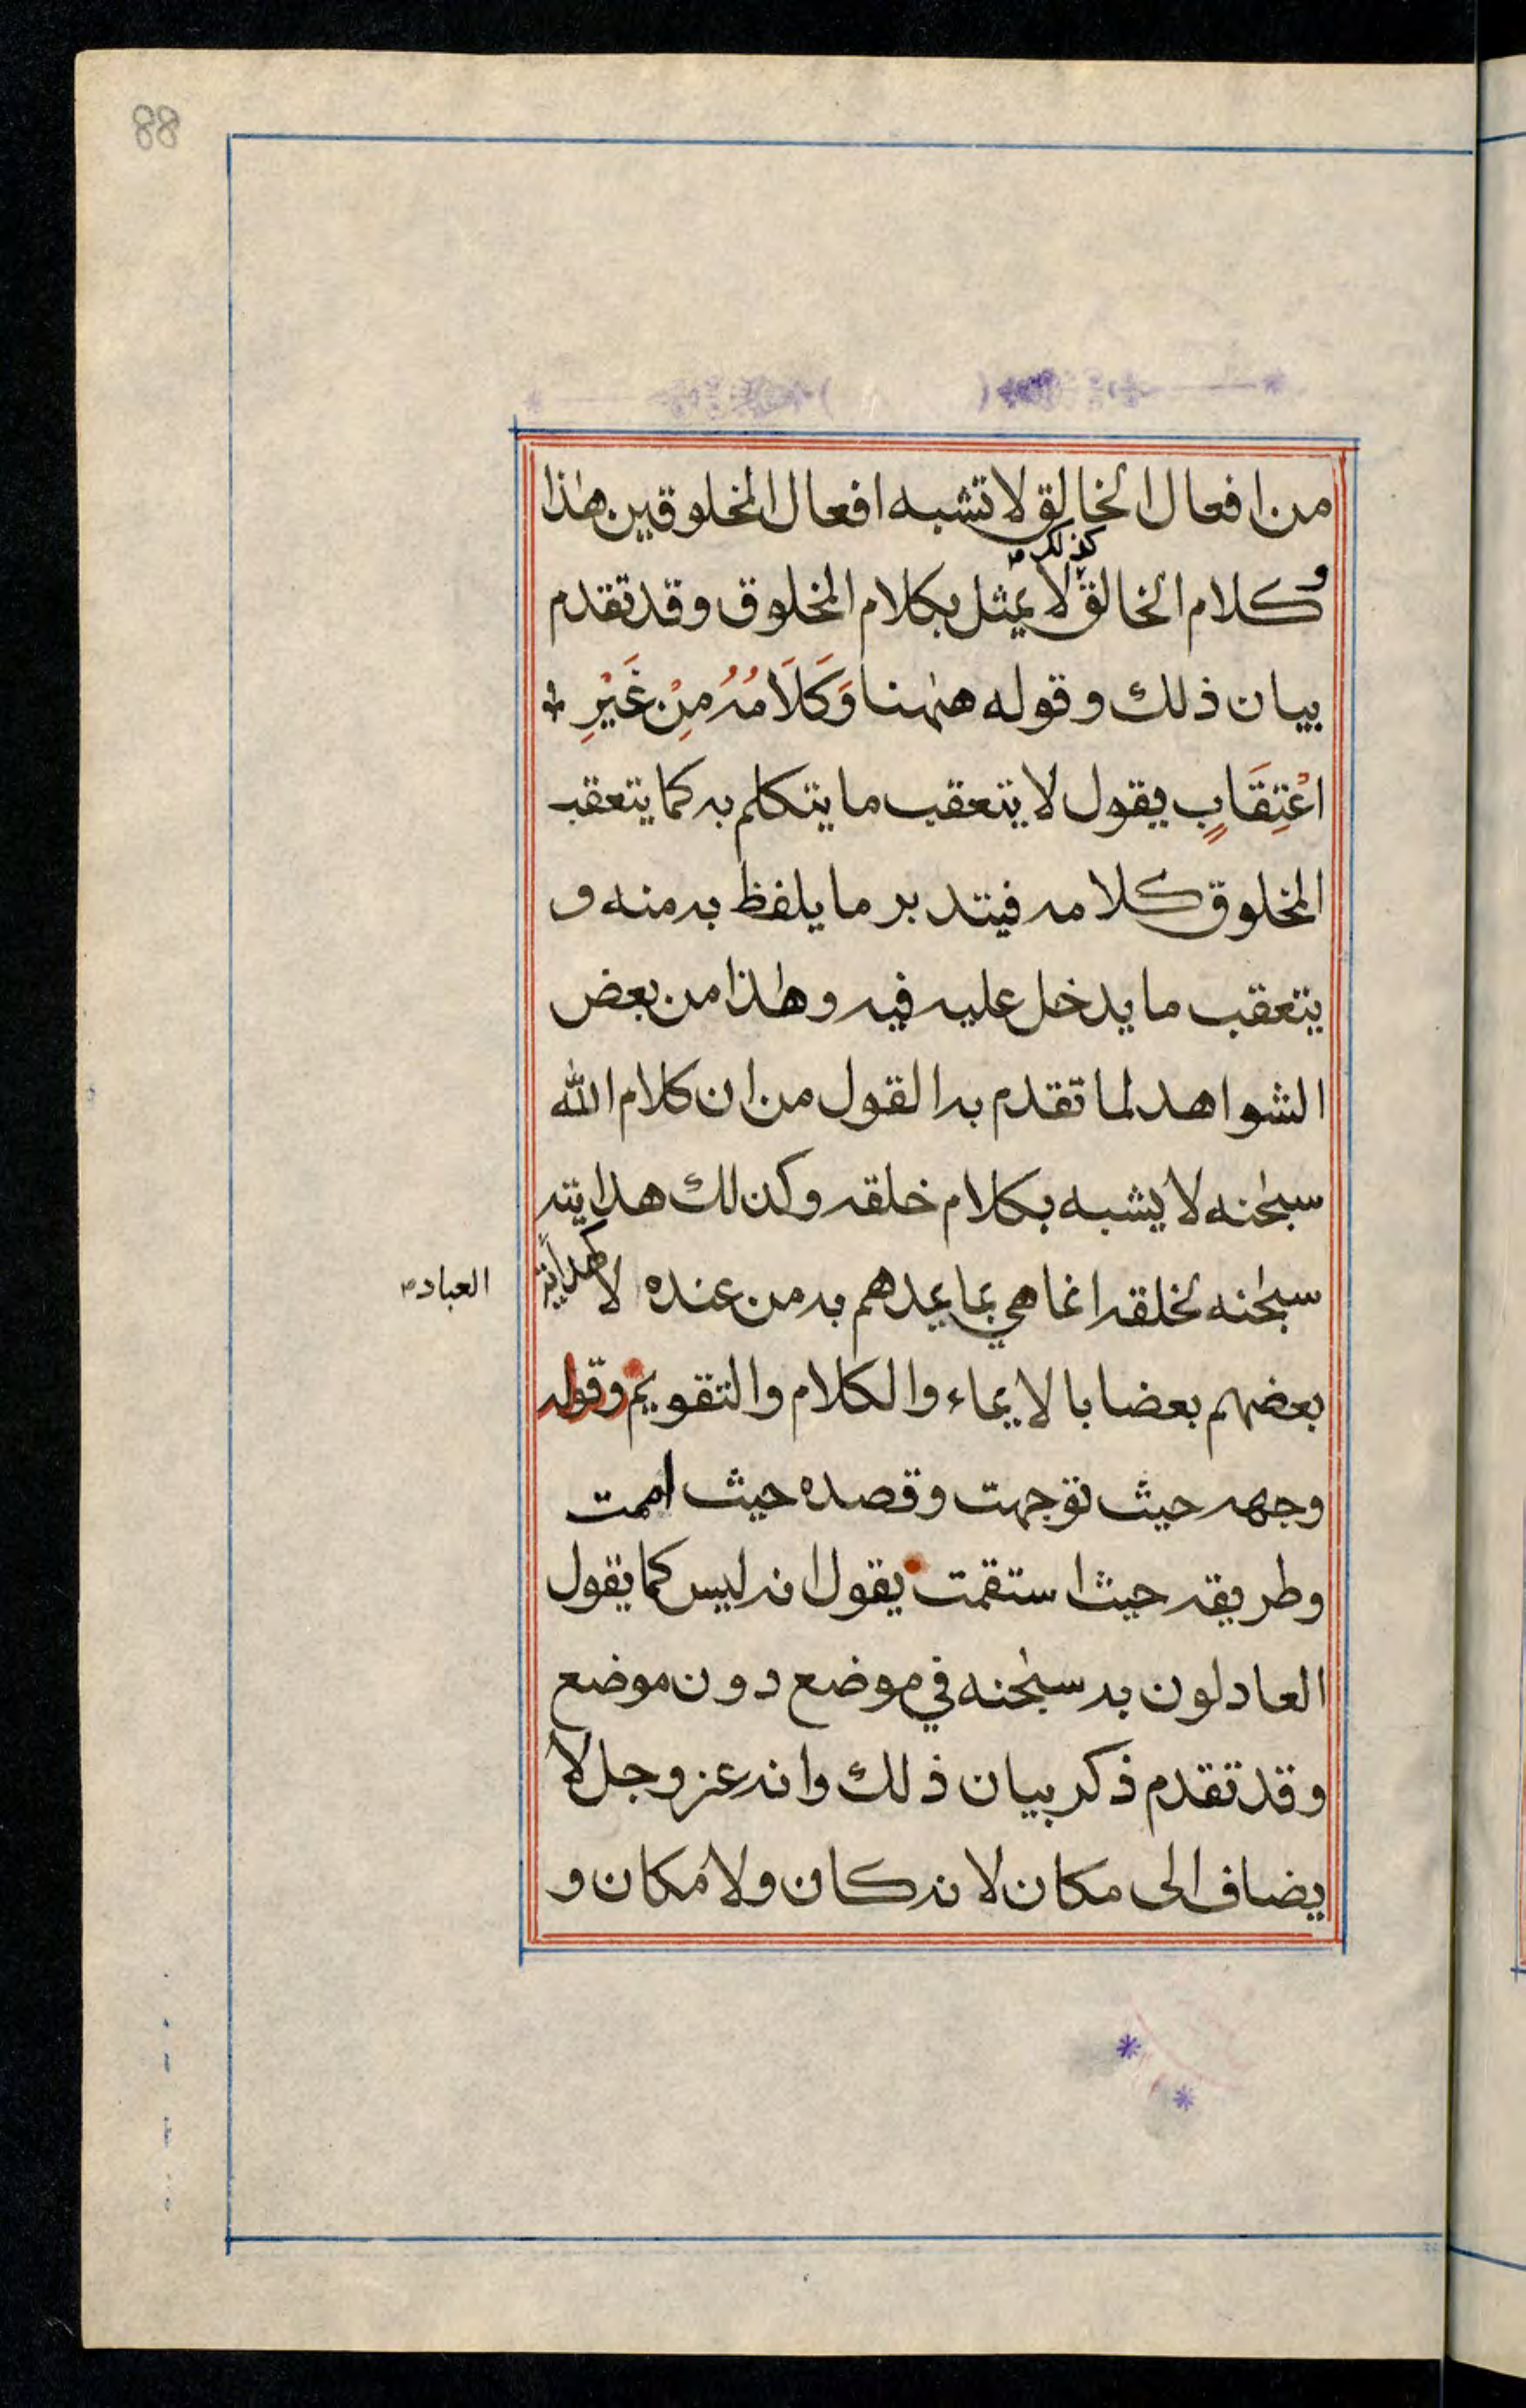 88
من افعال الخالق لا تشبه افعال المخلوقين هٰذا
كذلك صح
و كلام الخالق لا يمثل بكلام المخلوق وقد تقدم
بيان ذلك وقوله هٰهنا وَكَلَامُهُ مِنْ غَيْرِ
اعْتِقَابٍ يقول لا يتعقب ما يتكلم به كما يتعقب
المخلوق كلامه فيتدبر ما يلفظ به منه و
يتعقب ما يدخل عليه فيه وهٰذا من بعض
الشواهد لما تقدم به القول من ان كلام الله
سبحٰنه لا يشبه بكلام خلقه وكذلك هدايته
سبحٰنه لخلقه انما هي بما يمدهم به من عنده لا كهداية
العباد صح
بعضهم بعضا بالايماء والكلام والتقويم وقوله
وجهه حيث توجهت وقصده حيث اممت
وطريقه حيث استقمت يقول انه ليس كما يقول
العادلون به سبحٰنه في موضع دون موضع
وقد تقدم ذكر بيان ذلك وانه عز وجل لا
يضاف الى مكان لانه كان ولا مكان و